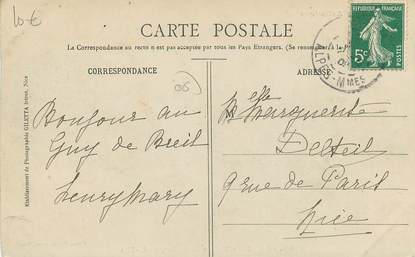 10 €
CARTE POSTALE
La Correspondance au recto n'est pas acceptée par tous les Pays Etrangers. (Se renseigner à la
CORRESPONDANCE
ADRESSE
REPUBLIQUE FRANÇAISE
5c
POSTES
ALPES-MMES
06
Etablissement de Photographie GILETTA frères, Nice
Bonjour au
Guy de Breil
Henry Mary
Melle Marguerite
Delteil
9 rue de Paris
Nice